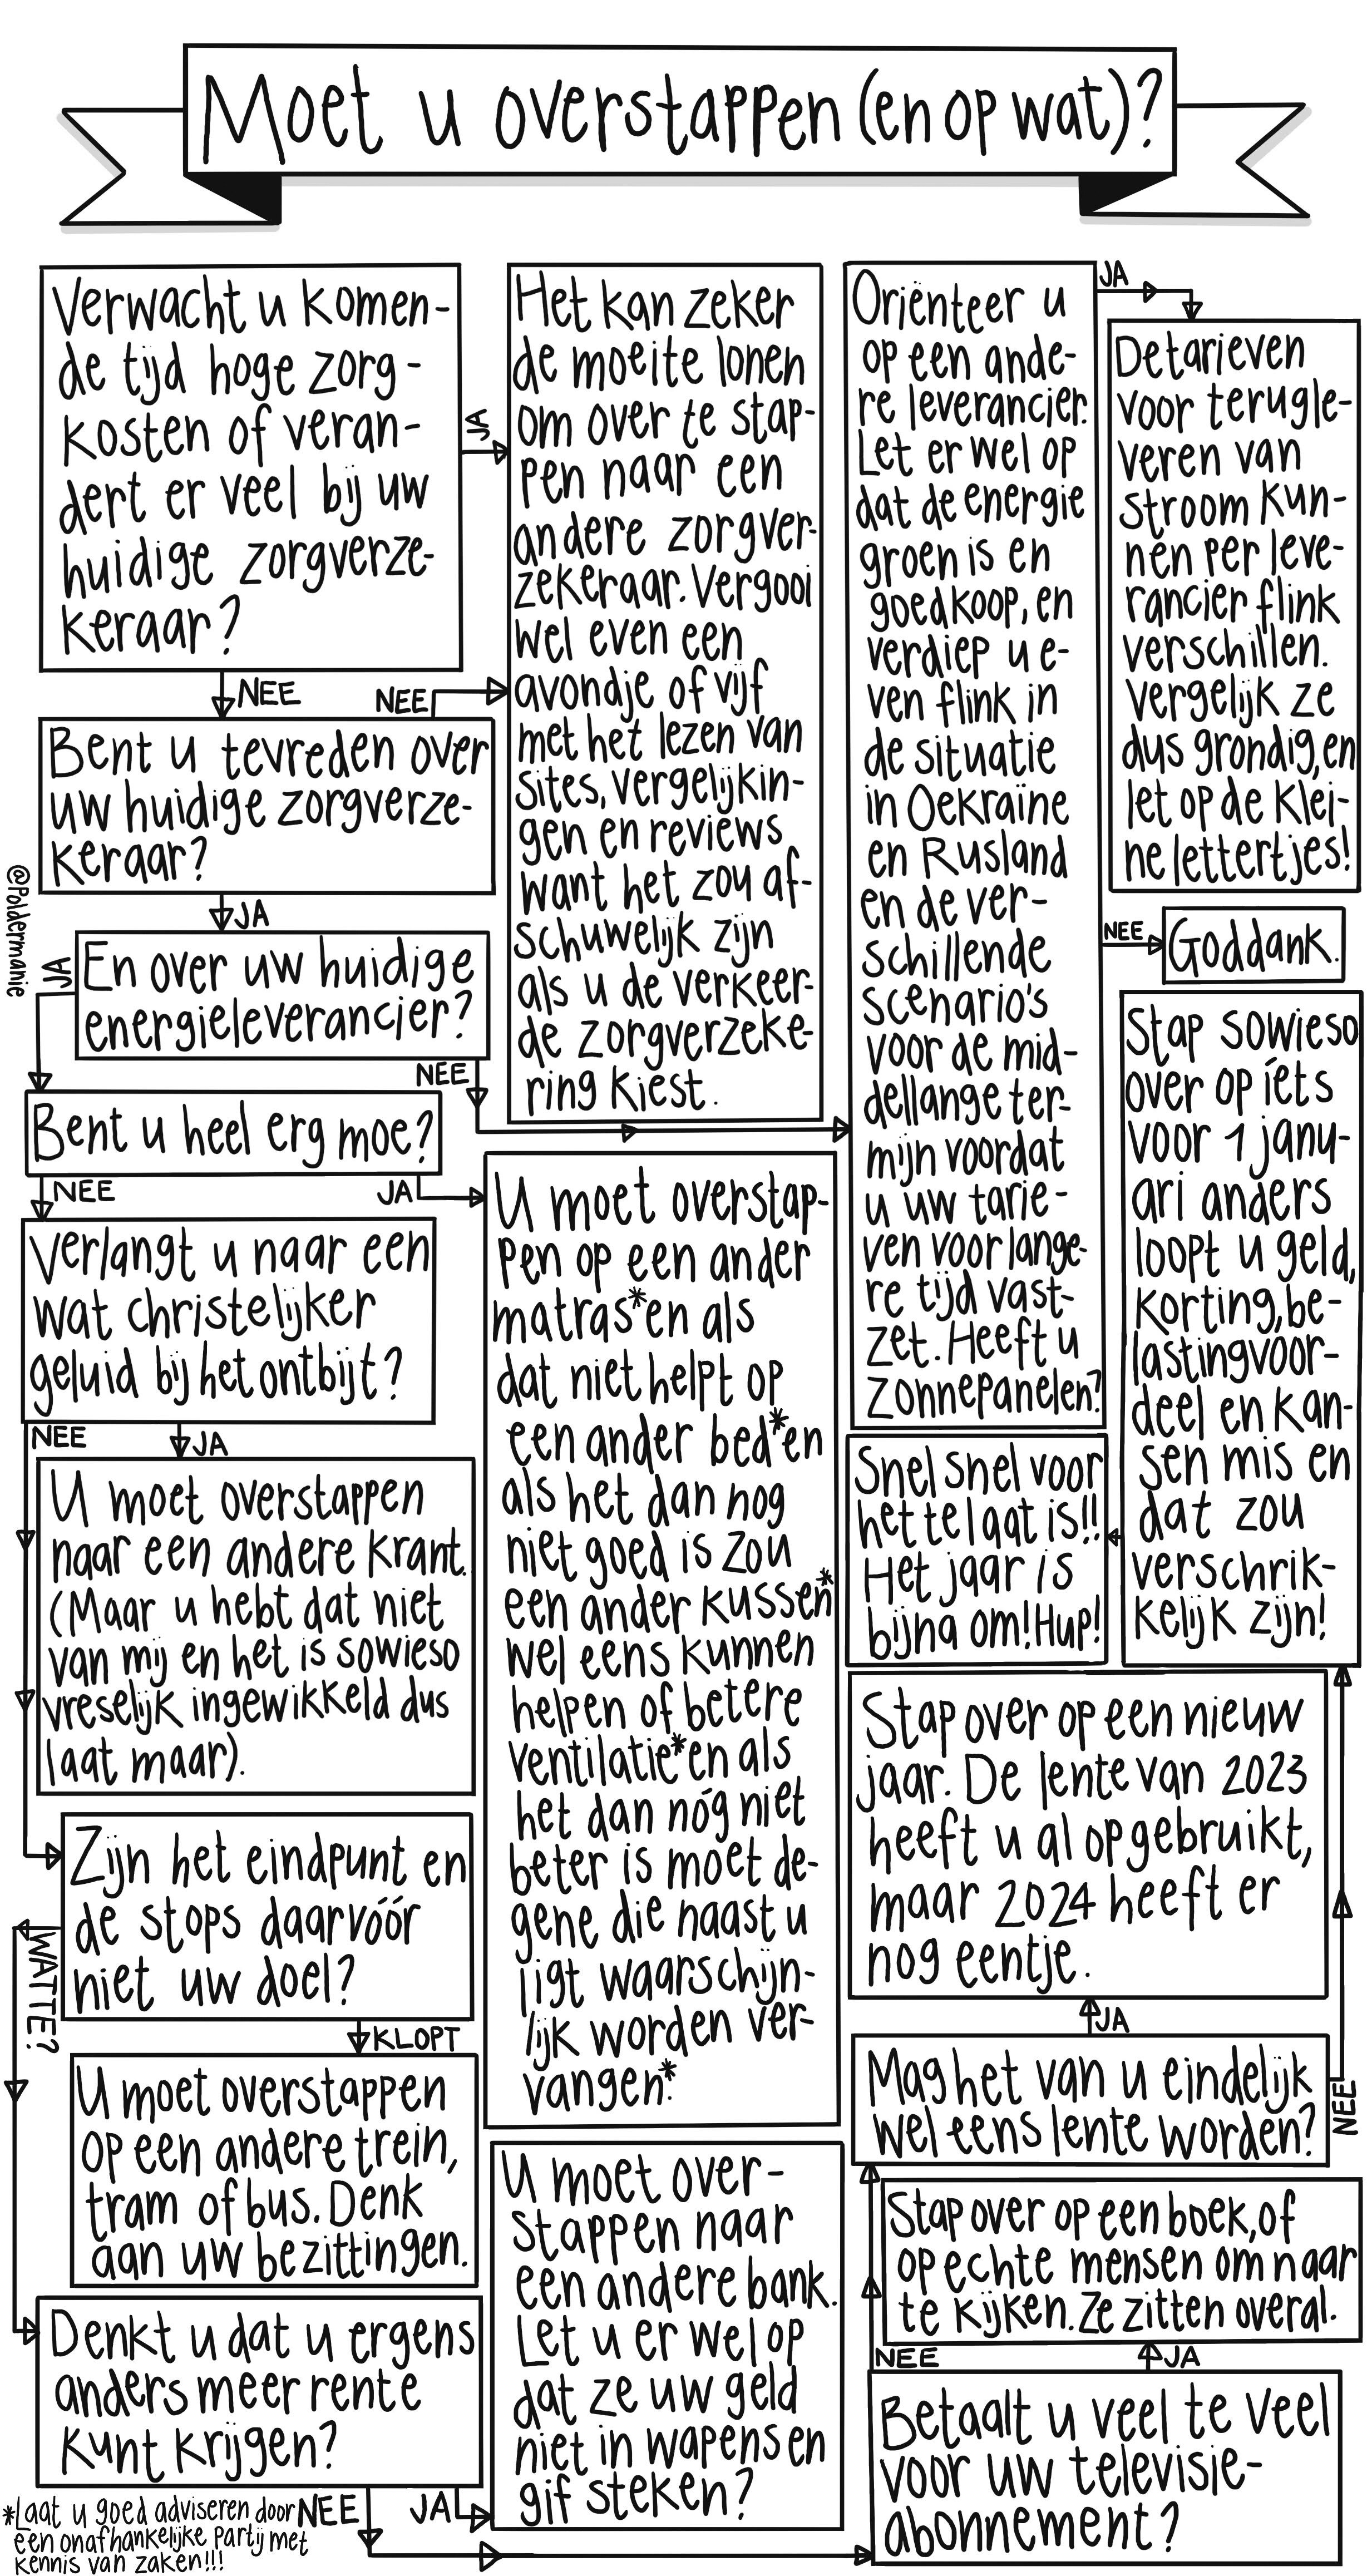 Moet u overstappen (en op wat)?
Verwacht u komen-
de tijd hoge zorg-
kosten of veran-
dert er veel bij uw
huidige zorgverze-
keraar?
JA
NEE
Het kan zeker
de moeite lonen
om over te stap-
pen naar een
andere zorgver-
zekeraar. Vergooi
wel even een
avondje of vijf
met het lezen van
sites, vergelijkin-
gen en reviews
want het zou af-
schuwelijk zijn
als u de verkeer-
de zorgverzeke-
ring kiest.
Bent u tevreden over
uw huidige zorgverze-
keraar?
NEE
JA
@Poldermanie
En over uw huidige
energieleverancier?
JA
NEE
Oriënteer u
op een ande-
re leverancier.
Let er wel op
dat de energie
groen is en
goedkoop, en
verdiep u e-
ven flink in
de situatie
in Oekraïne
en Rusland
en de ver-
schillende
scenario's
voor de mid-
dellange ter-
mijn voordat
u uw tarie-
ven voor lange-
re tijd vast-
zet. Heeft u
zonnepanelen?
JA
De tarieven
voor terugle-
veren van
stroom kun-
nen per leve-
rancier flink
verschillen.
Vergelijk ze
dus grondig, en
let op de klei-
ne lettertjes!
NEE
Goddank.
Bent u heel erg moe?
NEE
JA
U moet overstap-
pen op een ander
matras* en als
dat niet helpt op
een ander bed* en
als het dan nog
niet goed is zou
een ander kussen*
wel eens kunnen
helpen of betere
ventilatie* en als
het dan nóg niet
beter is moet de-
gene die naast u
ligt waarschijn-
lijk worden ver-
vangen*.
Verlangt u naar een
wat christelijker
geluid bij het ontbijt?
NEE
JA
U moet overstappen
naar een andere krant.
(Maar u hebt dat niet
van mij en het is sowieso
vreselijk ingewikkeld dus
laat maar).
Zijn het eindpunt en
de stops daarvóór
niet uw doel?
WATTE?
KLOPT
U moet overstappen
op een andere trein,
tram of bus. Denk
aan uw bezittingen.
Denkt u dat u ergens
anders meer rente
kunt krijgen?
NEE
JA
U moet over-
stappen naar
een andere bank.
Let u er wel op
dat ze uw geld
niet in wapens en
gif steken?
Betaalt u veel te veel
voor uw televisie-
abonnement?
NEE
JA
Stap over op een boek, of
op echte mensen om naar
te kijken. Ze zitten overal.
Mag het van u eindelijk
wel eens lente worden?
JA
NEE
Stap over op een nieuw
jaar. De lente van 2023
heeft u al opgebruikt,
maar 2024 heeft er
nog eentje.
Stap sowieso
over op iets
voor 1 janu-
ari anders
loopt u geld,
korting, be-
lastingvoor-
deel en kan-
sen mis en
dat zou
verschrik-
kelijk zijn!
Snel snel voor
het te laat is!!
Het jaar is
bijna om! Hup!
*Laat u goed adviseren door
een onafhankelijke partij met
kennis van zaken!!!